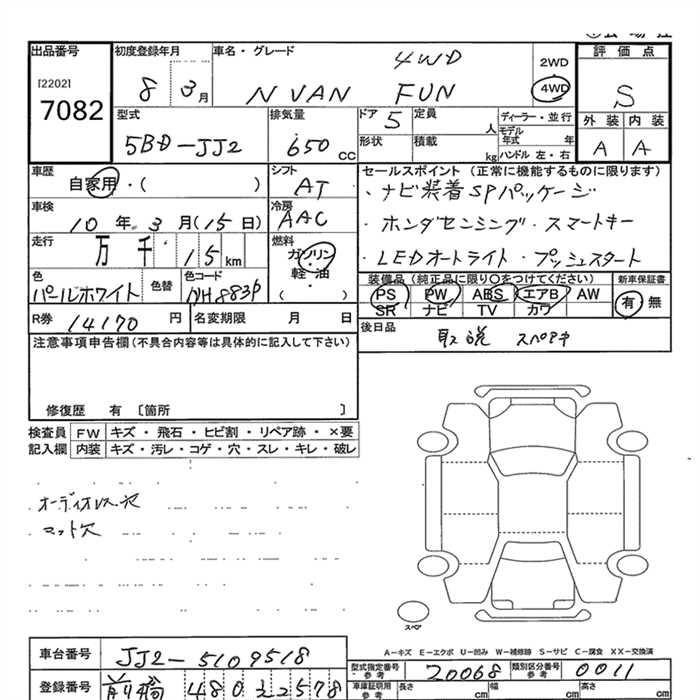 出品番号
[2202]
7082
初度登録年月
8 3月
車名・グレード
4WD
N VAN FUN
2WD
4WD
評価点
S
外装 内装
A A
型式
5BD-JJ2
排気量
650 cc
ドア 5
定員
人
形状
積載
kg
ディーラー・並行
モデル年式 年
ハンドル 左・右
車歴
自家用・( )
シフト
AT
セールスポイント(正常に機能するものに限ります)
・ナビ装着SPパッケージ
・ホンダセンシング・スマートキー
・LEDオートライト・プッシュスタート
車検
10年3月(15日)
冷房
AAC
走行
万 千 15 km
燃料
ガソリン
軽・油
( )
色
パールホワイト
色替
色コード
NH883P
装備品(純正品に限り〇をつけてください)
PS PW ABS エアB AW
SR ナビ TV カワ
新車保証書
有 無
R券 14170 円
名変期限 月 日
後日品
取説 スペアキ
注意事項申告欄(不具合内容等は具体的に記入して下さい)
修復歴 有 〔箇所 〕
検査員記入欄
FW キズ・飛石・ヒビ割・リペア跡・×要
内装 キズ・汚レ・コゲ・穴・スレ・キレ・破レ
オーディオレス穴
マット穴
スペア
A-キズ E-エクボ U-凹み W-補修跡 S-サビ C-腐食 XX-交換済
車台番号 JJ2-5109518
登録番号 前橋 480 い 2578
型式指定番号 参考 20068
類別区分番号 参考 0011
車庫証明用 参考 長さ cm 幅 cm 高さ cm